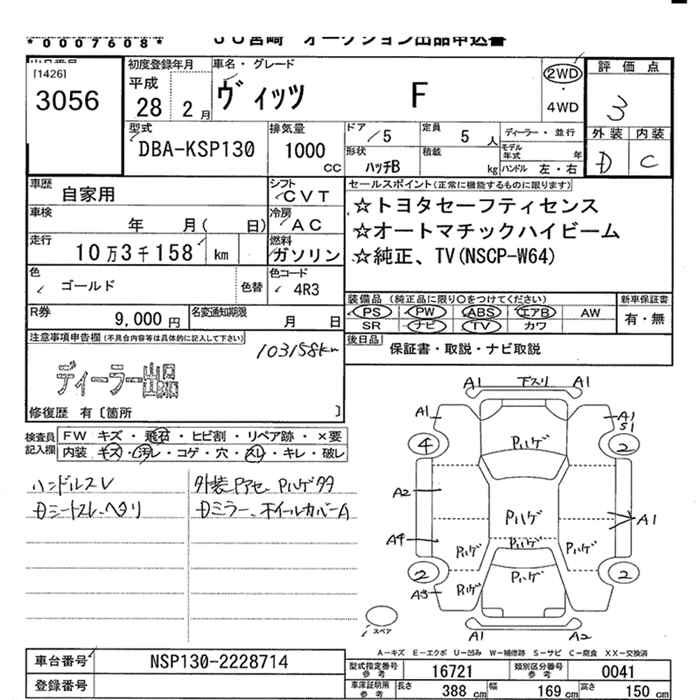 *0007608* JU宮崎 オークション出品申込書
[1426]
3056
初度登録年月
平成
28 2月
車名・グレード
ヴィッツ F
2WD
・
4WD
評価点
3
外装 内装
D C
型式
DBA-KSP130
排気量
1000
cc
ドア /5
定員 5人
ディーラー・並行
形状 ハッチB
積載 kg
モデル年式 年
ハンドル 左・右
車歴 自家用
シフト CVT
車検 年 月( 日)
冷房 AC
走行 10万3千158 km
燃料 ガソリン
色 ゴールド 色替
色コード 4R3
R券 9,000円
名変通知期限 月 日
セールスポイント(正常に機能するものに限ります)
☆トヨタセーフティセンス
☆オートマチックハイビーム
☆純正、TV(NSCP-W64)
装備品(純正品に限り○をつけてください) 新車保証書
PS PW ABS エアB AW 有・無
SR ナビ TV カワ
後日品 保証書・取説・ナビ取説
注意事項申告欄(不具合内容等は具体的に記入して下さい)
103158km
ディーラー出品
修復歴 有〔箇所 〕
検査員記入欄
FW キズ・飛石・ヒビ割・リペア跡・×要
内装 キズ・汚レ・コゲ・穴・スレ・キレ・破レ
ハンドルスレ
Dシートスレ、ヘタリ
外装Pアセ Pハゲタタ
Dミラー、ホイールカバーA
A1 下スリ A1
A1 A1
S1
4 Pハゲ 2
A2
Pハゲ A1
A4 Pハゲ Pハゲ Pハゲ
2 Pハゲ 2
A3 Pハゲ
スペア
A1 A2
A-キズ E-エクボ U-凹み W-補修跡 S-サビ C-腐食 XX-交換済
車台番号 NSP130-2228714
登録番号
型式指定番号 参考 16721
類別区分番号 参考 0041
車庫証明用 参考 長さ 388cm 幅 169cm 高さ 150cm